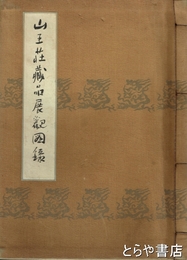 山王荘蔵品展観図録
とらや書店